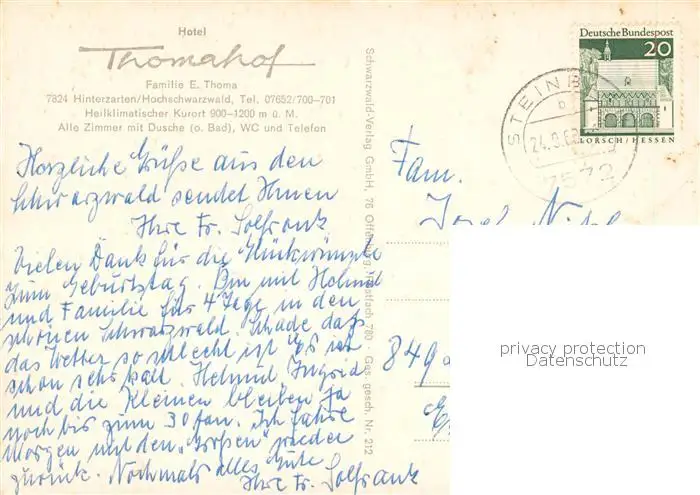 Hotel
Thomahof
Familie E. Thoma
7824 Hinterzarten/Hochschwarzwald, Tel. 07652/700-701
Heilklimatischer Kurort 900-1200 m ü. M.
Alle Zimmer mit Dusche (o. Bad), WC und Telefon
Herzliche Grüße aus dem
Schwarzwald sendet Ihnen
Ihre Fr. Solfrank
Vielen Dank für die Glückwünsche
zum Geburtstag. Bin mit Helmut
und Familie für 4 Tage in den
schönen Schwarzwald. Schade daß
das Wetter so schlecht ist. Es ist
schon sehr kalt. Helmut Ingrid
und die Kleinen bleiben ja
noch bis zum 30 Jan. Ich fahre
Morgen mit den „Großen" wieder
zurück. Nochmals alles Gute
Ihre Fr. Solfrank
Schwarzwald-Verlag GmbH, 76 Offenburg, Postfach 780 - Ges. gesch. Nr. 212
Deutsche Bundespost
20
LORSCH/HESSEN
STEINB
b
24.9.6
7572
Fam.
Josef
849
privacy protection
Datenschutz